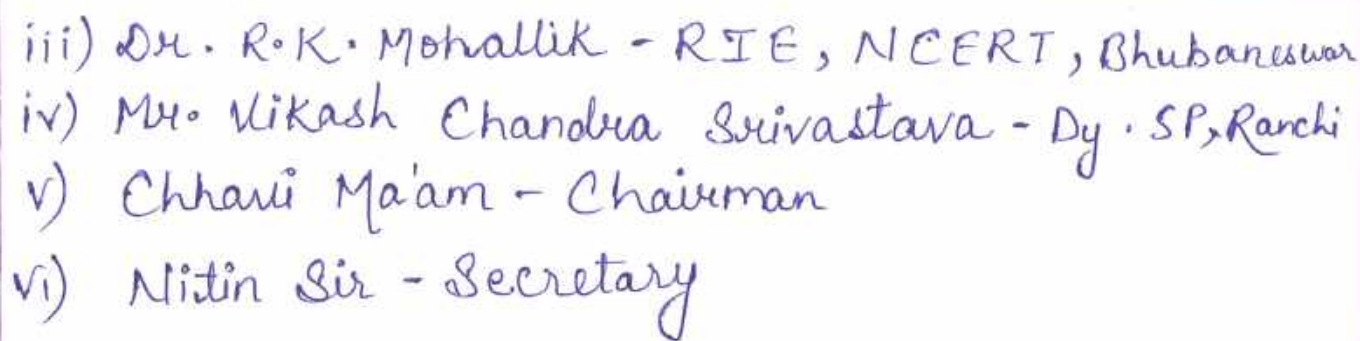 iii) Dr. R.K. Mohallik - RIE, NCERT, Bhubaneswar
iv) Mr. Vikash Chandra Srivastava - Dy. SP, Ranchi
v) Chhavi Ma'am - Chairman
vi) Nitin Sir - Secretary